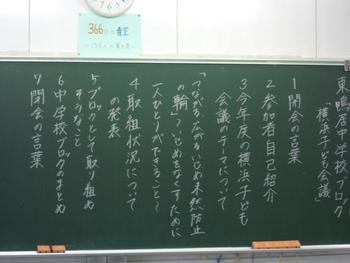 366日の青空
東鴨居中学校ブロック
「横浜子ども会議」
1 開会の言葉
2 参加者自己紹介
3 今年度の横浜子ども
会議のテーマについて
「つながる、広がる、いじめ未然防止
の輪」～いじめをなくすために
一人ひとりができること～
4 取組状況について
の発表
5 ブロックとして取り組め
そうなこと
6 中学校ブロックのまとめ
7 閉会の言葉